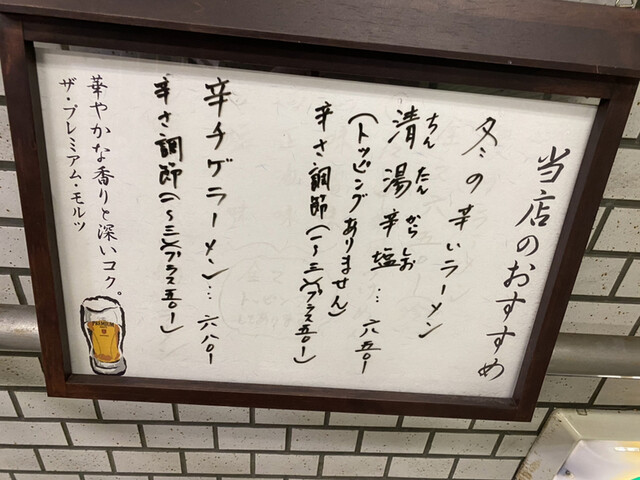 当店のおすすめ
冬の辛いラーメン
清湯辛塩…六五〇ー
ちんたんからしお
(トッピングありません)
辛さ調節(一〜三)(プラス五〇ー)
辛チゲラーメン…六八〇ー
辛さ調節(一〜三)(プラス五〇ー)
華やかな香りと深いコク。
ザ・プレミアム・モルツ
PREMIUM